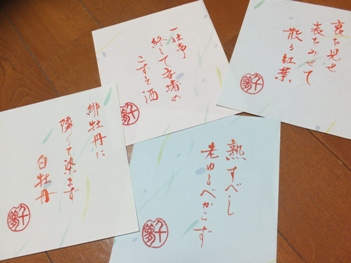 裏を見せ
表をみせて
散る紅葉
一仕事
終えて
酒
緋牡丹に
隣りて染まず
白牡丹
熟すべし
老ゆるべからず